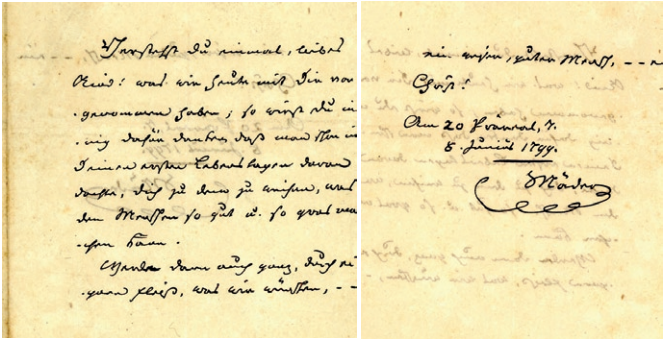 Verstehst du einmal, liebes
Kind! was wir heute mit Dir vor
-genommen haben; so wirst du in
-nig dafür danken, daß man schon in
Deinen ersten Lebenstagen daran
dachte, dich zu dem zu weihen, was
den Menschen so gut u. so gros ma
-chen kann.
Werde dann auch ganz, durch ei
-gnen Fleiß, was wir wünschen, --
ein weiser, guter Mensch, -- ein
Christ!
Am 20 Prärial, 7.
8. Junius 1799.